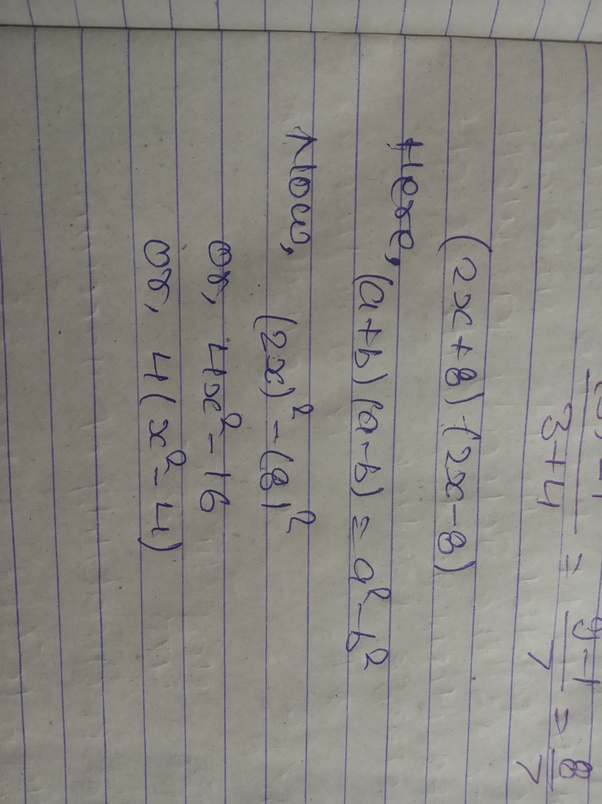 3+4 = 9-1/7 = 8/7
(2x+8) (2x-8)
Here,
(a+b) (a-b) = a²-b²
Now,
(2x)² - (8)²
or, 4x² - 16
or, 4(x² - 4)